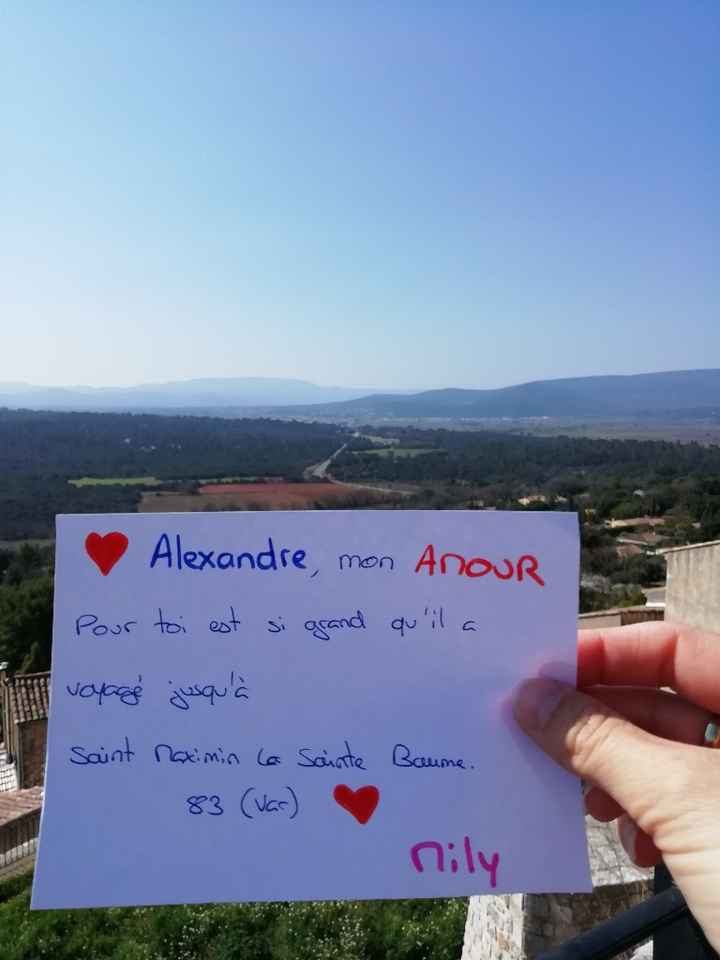 Alexandre, mon AMOUR
Pour toi est si grand qu'il a
voyagé jusqu'à
Saint Maximin La Sainte Baume.
83 (Var)
Mily